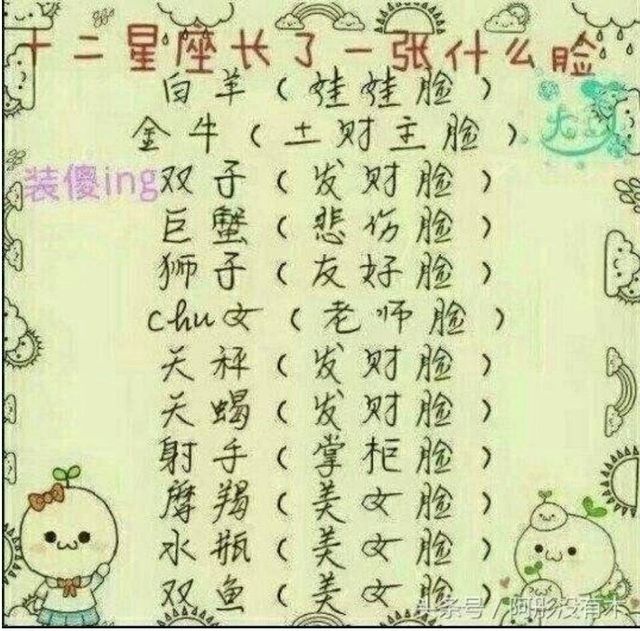 十二星座长了一张什么脸
白羊（娃娃脸）
金牛（土财主脸）
装傻ing
双子（发财脸）
巨蟹（悲伤脸）
狮子（友好脸）
chu女（老师脸）
天秤（发财脸）
天蝎（发财脸）
射手（掌柜脸）
摩羯（美女脸）
水瓶（美女脸）
双鱼（美女脸）
头条号／阿彤没有木